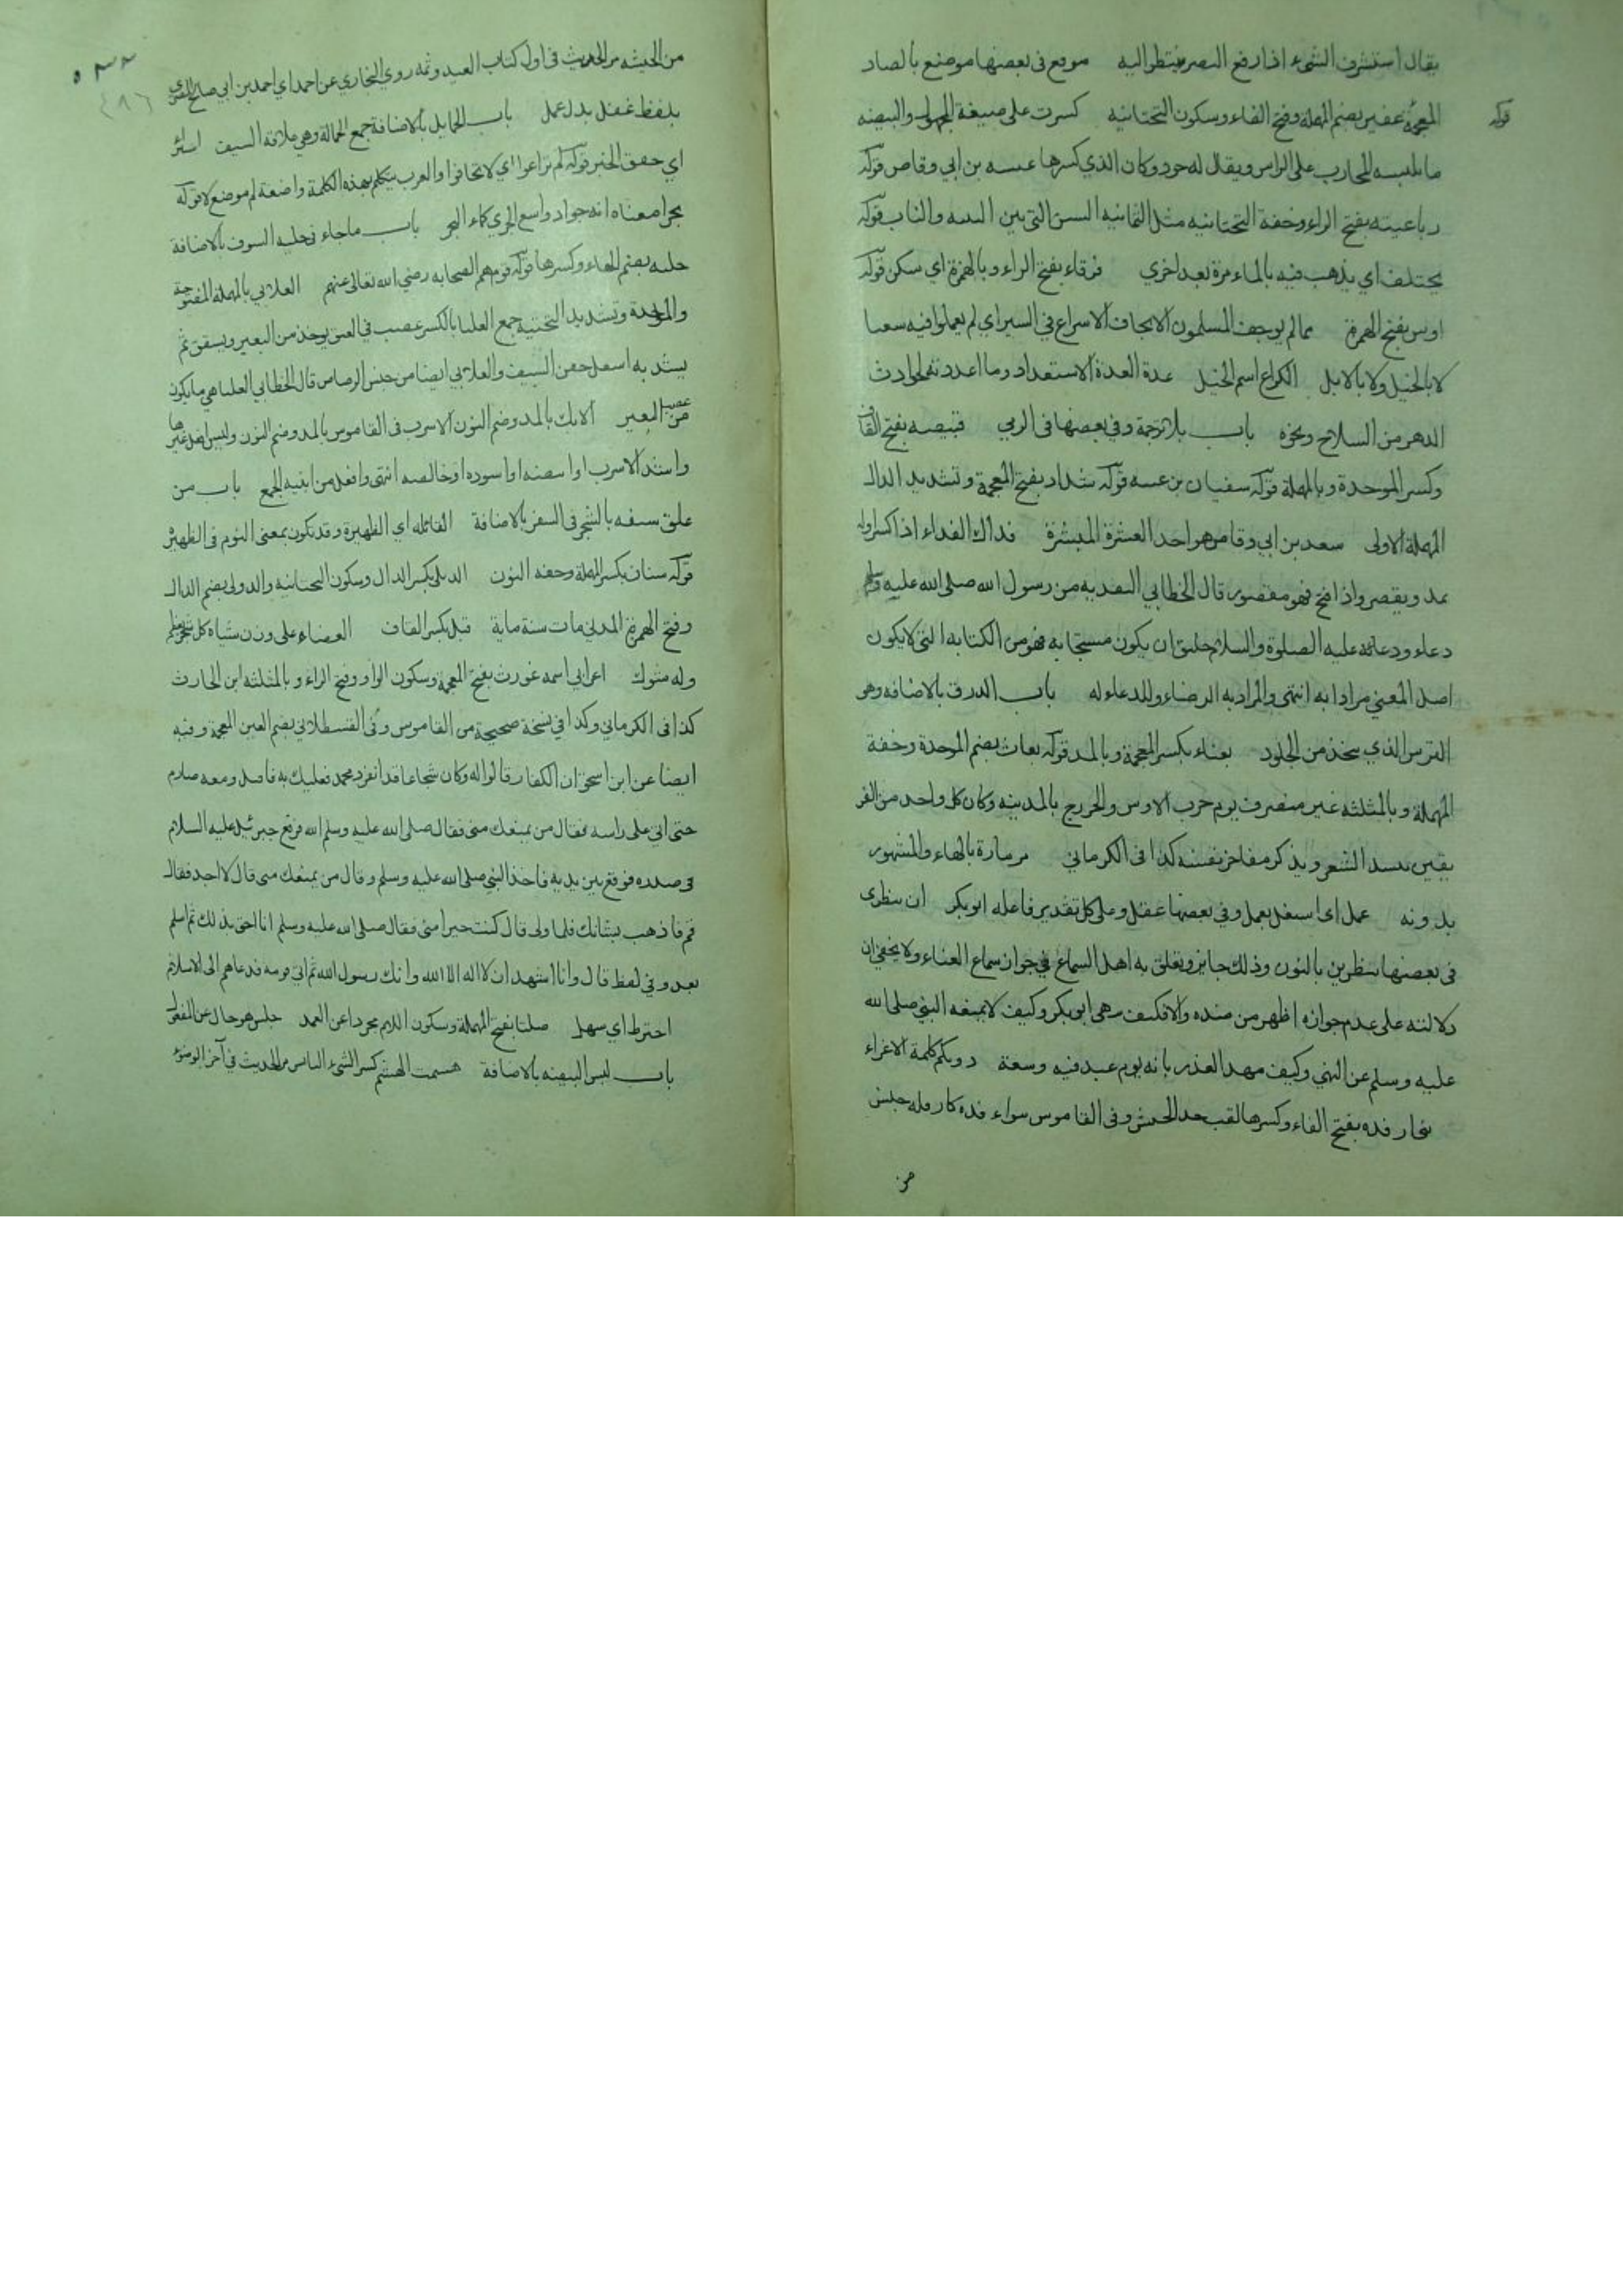 يقال استشرف الشيء اذا رفع البصر ينظر اليه موقع في بعضها موضع بالصاد
قوله
المعجمة عفير بضم المهملة وفتح الفاء وسكون التحتانيه كسرت على صيغة المجهول والبيضه
ما يلبسه المحارب على الراس ويقال له خود وكان الذي كسرها عتبه بن ابي وقاص قوله
رباعيته بفتح الراء وخفة التحتانيه مثل الثمانيه السن التي بين الثنيه والناب قوله
يختلف اي يذهب فيه بالماء مرة بعد اخري فرقاء بفتح الراء وبالهمزة اي سكن قوله
اوس بفتح الهمزة مما لم يوجف المسلمون الايجاف الاسراع في السير اي لم يعملوا فيه سعيا
لا بالخيل ولا بالابل الكراع اسم الخيل عدة العدة الاستعداد وما اعددته لحوادث
الدهر من السلاح ونحوه باب بلا ترجمة وفي بعضها في الرمي قبيصه بفتح القاف
وكسر الموحدة وبالمهملة قوله سفيان بن قوله شداد بفتح المعجمة وتشديد الدال
المهملة الاولى سعد بن ابي وقاص هو احد العشرة المبشرة فداك الفداء اذا كسر اوله
يمد ويقصر واذا فتح فهو مقصور قال الخطابي التفديه من رسول الله صلى الله عليه وسلم
دعاء ودعائه عليه الصلوة والسلام خليق ان يكون مستجابه فهو من الكنايه التي لا يكون
اصل المعني مرادا به انتهى والمراد به الرضاء والدعاء له باب الدرق بالاضافه وهو
الترس الذي يتخذ من الجلود بغناء بكسر المعجمة وبالمد قوله بعاث بضم الموحدة وخفة
المهملة وبالمثلثه غير منصرف يوم حرب الاوس والخزرج بالمدينه وكان كل واحد من الفر
يقين ينشد الشعر ويذكر مفاخر نفسه كذا في الكرماني مزمارة بالهاء والمشهور
بدونه عمل اي اشتغل بعمل وفي بعضها غفل وعلى كل تقدير فاعله ابو بكر ان تنظري
في بعضها تنظرين بالنون وذلك جايز وتعلق به اهل السماع في جواز سماع الغناء ولا يخفى ان
دلالته على عدم جوازه اظهر من ضده والا فكيف نهى ابو بكر وكيف لا يمنعه النبي صلى الله
عليه وسلم عن النهي وكيف مهد العذر بانه يوم عيد فيه وسعة دونكم كلمة الاغراء
بني ارفده بفتح الفاء وكسرها لقب جد الحبش وفي القاموس بنو ارفدة كارفله جنس
من
من الحبشه مر الحديث في اول كتاب العيد وثمه روي البخاري عن احمد اي احمد بن ابي صالح المصري
بلفظ غفل بدل عمل باب الحمايل بالاضافة جمع الحمالة وهي علاقة السيف استبرأ
اي حقق الخبر قوله لم تراعوا اي لا تخافوا والعرب يتكلم بهذه الكلمة واضعة لم موضع لا قوله
بحرا معناه انه جواد واسع الجري كماء البحر باب ما جاء في حليه السيوف بالاضافة
حليه بضم الحاء وكسرها قوله قوم هم الصحابه رضي الله تعالى عنهم العلابي بالمهملة المفتوحة
والموحدة وتشديد التحتية جمع العلبا بالكسر عصب في العنق يوخذ من البعير ويشقق ثم
يشد به اسفل جفن السيف والعلابي ايضا من جنس الرصاص قال الخطابي العلبا هي ما يكون
من عصب البعير الانك بالمد وضم النون الاسرب في القاموس بالمد وضم النون وليس افعل غيرها
واشد الاسرب او ابيضه او اسوده او خالصه انتهى وافعل من ابنيه الجمع باب من
علق سيفه بالشجر في السفر بالاضافة القائله اي الظهيرة وقد تكون بمعنى النوم في الظهيرة
قوله سنان بكسر المهملة وخفة النون الديلي بكسر الدال وسكون التحتانيه والدولى بضم الدال
وفتح الهمزة المدني مات سنة ماية قبل بكسر القاف العضاه على وزن شياه كل شجر عظيم
وله شوك اعرابي اسمه غورث بفتح المعجمة وسكون الواو وفتح الراء وبالمثلثه ابن الحارث
كذا في الكرماني وكذا في نسخة صحيحة من القاموس وفي القسطلاني بضم الغين المعجمة وفيه
ايضا عن ابن اسحق ان الكفار قالوا له وكان شجاعا قد انفرد محمد فعليك به فاقبل ومعه صارم
حتى اتى على راسه فقال من يمنعك منى فقال صلى الله عليه وسلم الله فدفع جبرئيل عليه السلام
في صدره فوقع من يديه فاخذ النبي صلى الله عليه وسلم وقال من يمنعك مني قال لا احد فقال
قم فاذهب بشانك فلما ولى قال كنت خيرا مني فقال صلى الله عليه وسلم انا احق بذلك ثم اسلم
بعد وفي لفظ قال وانا اشهد ان لا اله الا الله وانك رسول الله ثم اتى قومه فدعاهم الى الاسلام
اخترط اي سل صلتا بفتح المهملة وسكون اللام مجردا عن الغمد جلس هو حال عن المفعول
باب لبس البيضه بالاضافة هشمت الهشم كسر الشيء اليابس مر الحديث في آخر الوضوء